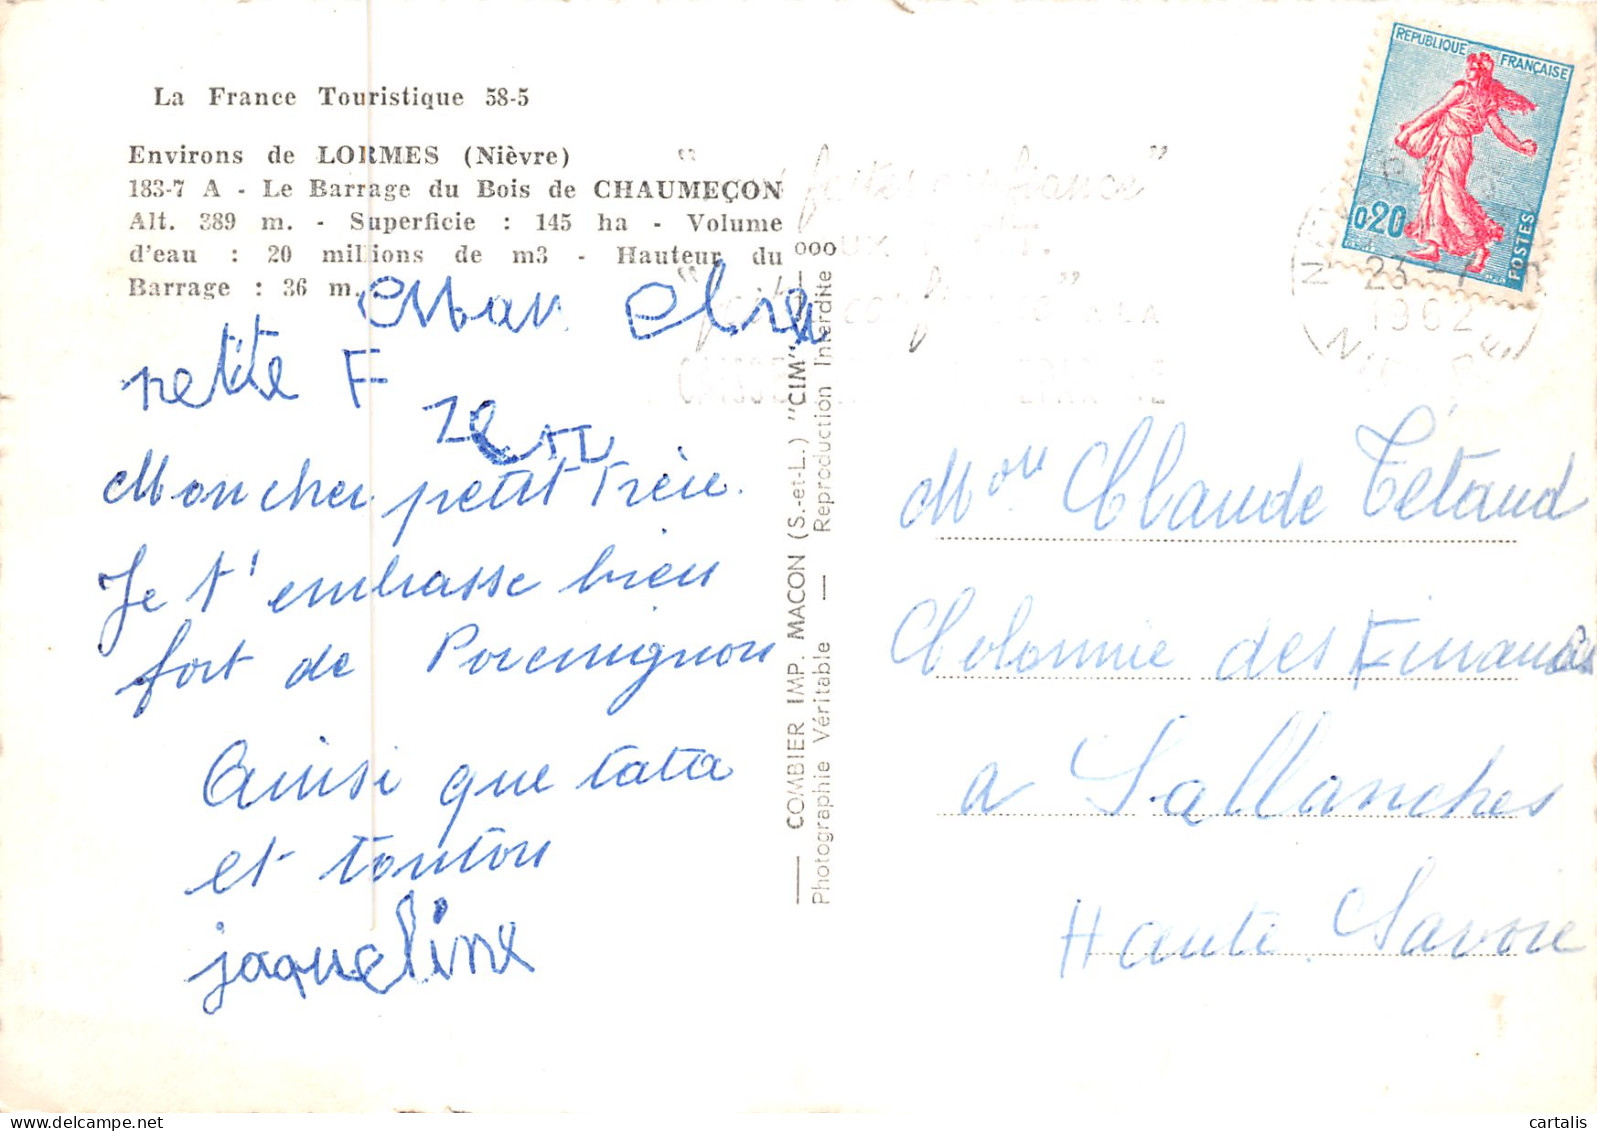 La France Touristique 58-5
Environs de LORMES (Nièvre)
183-7 A - Le Barrage du Bois de CHAUMEÇON
Alt. 389 m. - Superficie : 145 ha - Volume
d'eau : 20 millions de m3 - Hauteur du
Barrage : 36 m.
Mon cher
petite F
Mon cher petit frère.
Je t'embrasse bien
fort de
Ainsi que tata
et tonton
jaqueline
COMBIER IMP. MACON (S.-et-L.) "CIM"
Photographie Véritable — Reproduction Interdite
REPUBLIQUE FRANÇAISE
0,20
POSTES
faites confiance"
23 -7
1962
Claude Tétaud
Colonnie des Finances
a Sallanches
Haute Savoie
cartalis